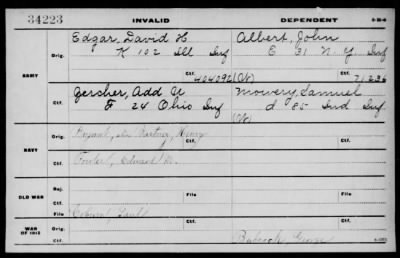 34223 INVALID DEPENDENT
Edgar, David H Albert, John
Orig. K 102 Ill Inf Orig. E 31 N Y Inf
ARMY 404092 (W) 71236
Ctf. Ctf.
Gersher, Add U Mowery, Samuel
F 24 Ohio Inf d 85 Ind Inf
(W)
Orig. Bryant, Henry Orig.
NAVY
Ctf. Fowler, Edward M. Ctf.
Rej. File File
OLD WAR
Ctf. Coburn, Paul Ctf.
WAR OF 1812 Orig. Ctf.
Ctf. Babcock, George